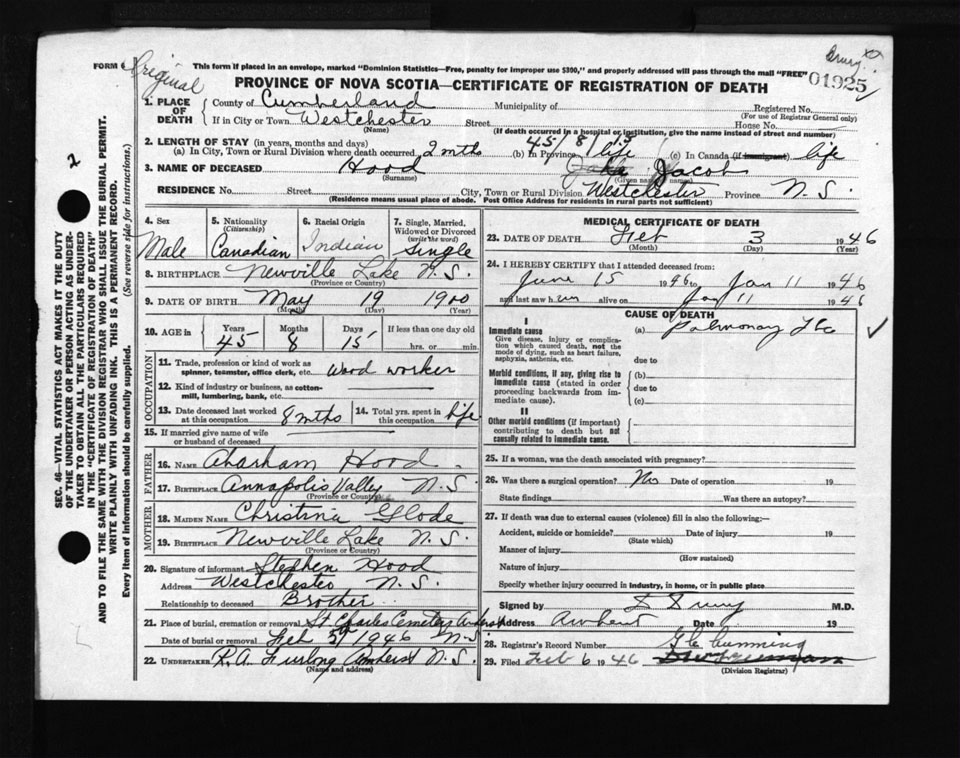 This form if placed in an envelope, marked "Dominion Statistics—Free, penalty for improper use $300," and properly addressed will pass through the mail "FREE"
FORM 6
Original
01925
PROVINCE OF NOVA SCOTIA—CERTIFICATE OF REGISTRATION OF DEATH
1. PLACE OF DEATH County of Cumberland Municipality of Registered No.
(For use of Registrar General only)
If in City or Town Westchester Street House No.
(Name) (If death occurred in a hospital or institution, give the name instead of street and number)
2. LENGTH OF STAY (in years, months and days) 45 / 8 / 15
(a) In City, Town or Rural Division where death occurred 2 mths (b) In Province life (c) In Canada (if immigrant) life
3. NAME OF DECEASED Hood Jake Jacob
(Surname) (Given name or names)
RESIDENCE No. Street City, Town or Rural Division Westchester Province N.S.
(Residence means usual place of abode. Post Office Address for residents in rural parts not sufficient)
4. Sex Male
5. Nationality (Citizenship) Canadian
6. Racial Origin Indian
7. Single, Married, Widowed or Divorced (write the word) Single
8. BIRTHPLACE Newville Lake N.S.
(Province or Country)
9. DATE OF BIRTH May 19 1900
(Month) (Day) (Year)
10. AGE in Years 45 Months 8 Days 15 If less than one day old hrs. or min.
OCCUPATION
11. Trade, profession or kind of work as spinner, teamster, office clerk, etc. wood worker
12. Kind of industry or business, as cotton-mill, lumbering, bank, etc.
13. Date deceased last worked at this occupation 8 mths
14. Total yrs. spent in this occupation life
15. If married give name of wife or husband of deceased
FATHER
16. NAME Abraham Hood
17. BIRTHPLACE Annapolis Valley N.S.
(Province or Country)
MOTHER
18. MAIDEN NAME Christina Glode
19. BIRTHPLACE Newville Lake N.S.
(Province or Country)
20. Signature of informant Stephen Hood
Address Westchester N.S.
Relationship to deceased Brother
21. Place of burial, cremation or removal St Charles Cemetery Amherst
Date of burial or removal Feb 5th 1946 N.S.
22. UNDERTAKER R.A. Furlong Amherst N.S.
(Name and address)
MEDICAL CERTIFICATE OF DEATH
23. DATE OF DEATH Feb 3 1946
(Month) (Day) (Year)
24. I HEREBY CERTIFY that I attended deceased from:
June 15 1946 to Jan 11 1946
and last saw him alive on Jan 11 1946
CAUSE OF DEATH
I
Immediate cause (a) Pulmonary Tbc
Give disease, injury or complication which caused death, not the mode of dying, such as heart failure, asphyxia, asthenia, etc.
due to
Morbid conditions, if any, giving rise to immediate cause (stated in order proceeding backwards from immediate cause).
(b)
due to
(c)
II
Other morbid conditions (if important) contributing to death but not causally related to immediate cause.
25. If a woman, was the death associated with pregnancy?
26. Was there a surgical operation? No Date of operation 19
State findings Was there an autopsy?
27. If death was due to external causes (violence) fill in also the following:—
Accident, suicide or homicide? Date of injury 19
(State which)
Manner of injury
(How sustained)
Nature of injury
Specify whether injury occurred in industry, in home, or in public place
Signed by M.D.
Address Amherst Date 19
28. Registrar's Record Number
29. Filed Feb 6 1946 Cumming
(Division Registrar)
SEC. 46—VITAL STATISTICS ACT MAKES IT THE DUTY
OF THE UNDERTAKER OR PERSON ACTING AS UNDER-
TAKER TO OBTAIN ALL THE PARTICULARS REQUIRED
IN THE "CERTIFICATE OF REGISTRATION OF DEATH"
AND TO FILE THE SAME WITH THE DIVISION REGISTRAR WHO SHALL ISSUE THE BURIAL PERMIT.
WRITE PLAINLY WITH UNFADING INK. THIS IS A PERMANENT RECORD.
Every item of information should be carefully supplied. (See reverse side for instructions.)
2